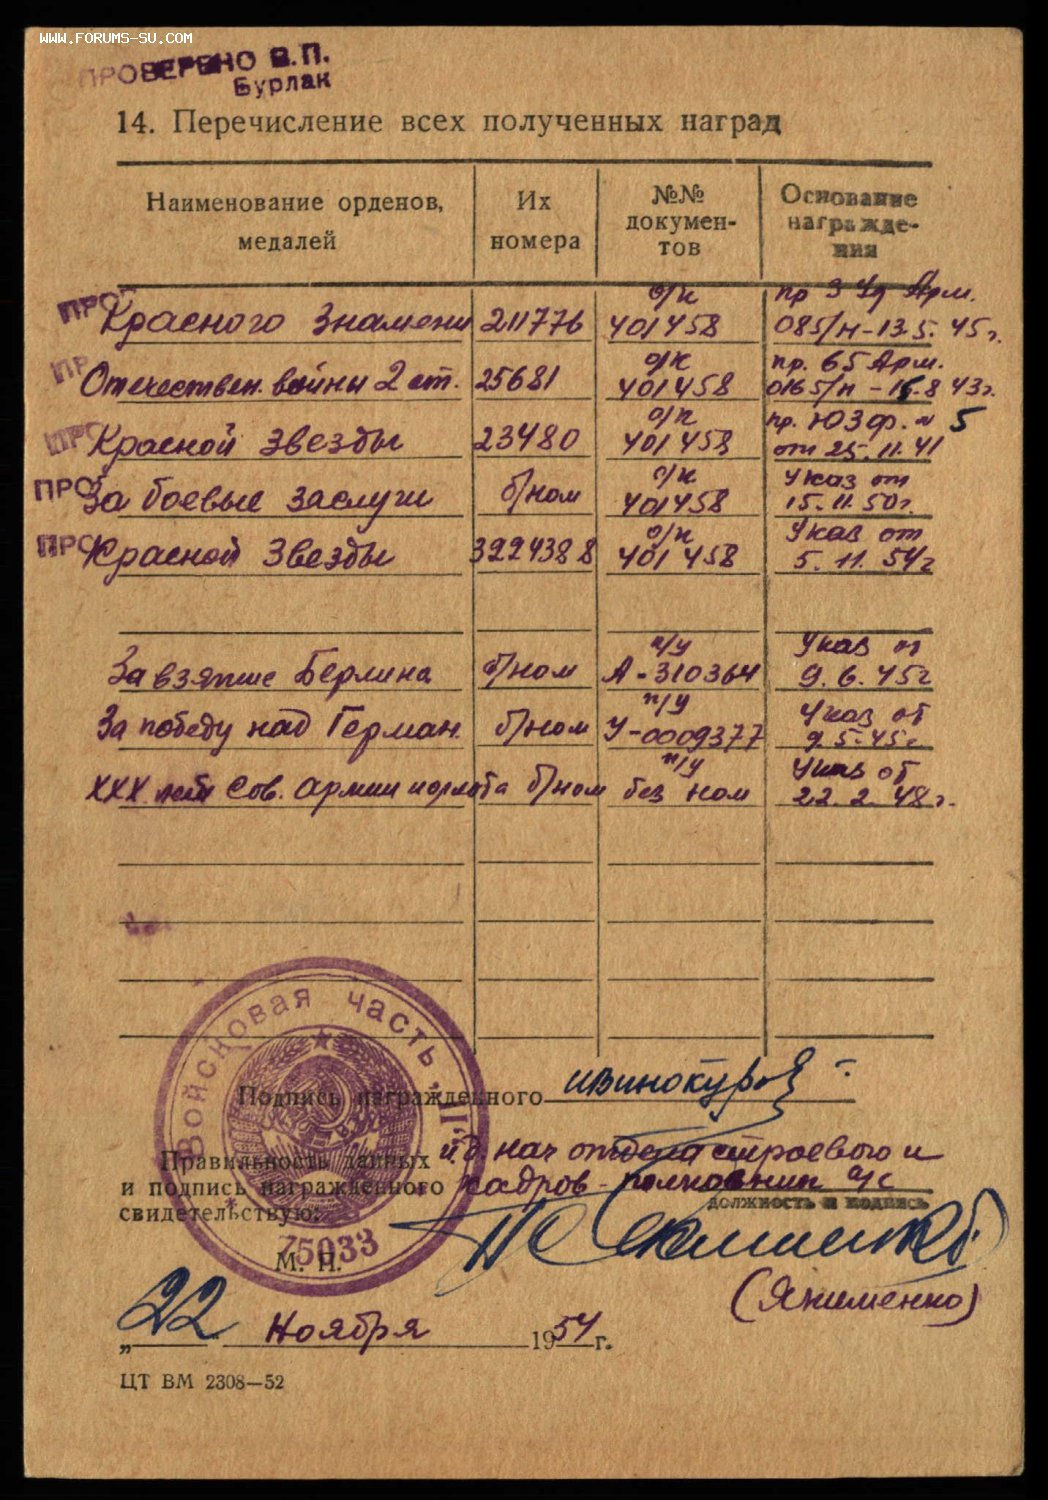 WWW.FORUMS-SU.COM
ПРОВЕРЕНО В.П.
Бурлак
14. Перечисление всех полученных наград
Наименование орденов, медалей
Их номера
№№ докумен-тов
Основание награжде-ния
ПРО
о/к
пр 3 Уд Арм.
Красного Знамени 211776 401458 085/н-13.5.45г.
ПР
о/к
пр. 65 Арм.
Отечествен. войны 2 ст. 25681 401458 0165/н - 15.8 43г.
ПРО
о/к
пр. ЮЗФ. № 5
Красной Звезды 23480 401458 от 25.11.41
ПРО
о/к
Указ от
За боевые заслуги б/ном 401458 15.11.50г.
ПРО
о/к
Указ от
Красной Звезды 3224388 401458 5.11.54г
п/у
Указ от
За взятие Берлина б/ном А-310364 9.6.45г
п/у
Указ от
За победу над Герман. б/ном У-0009377 9.5.45г.
п/у
Указ от
XXX лет Сов. Армии и флота б/ном без ном 22.2.48г.
Войсковая часть
п.п.
75033
Подпись награжденного ИВинокуров
Правильность данных
и подпись награжденного
свидетельствую:
и.д. нач отдела строевого и
кадров - полковник а/с
должность и подпись
М. П.
(Якименко)
„22" Ноября 1954 г.
ЦТ ВМ 2308—52